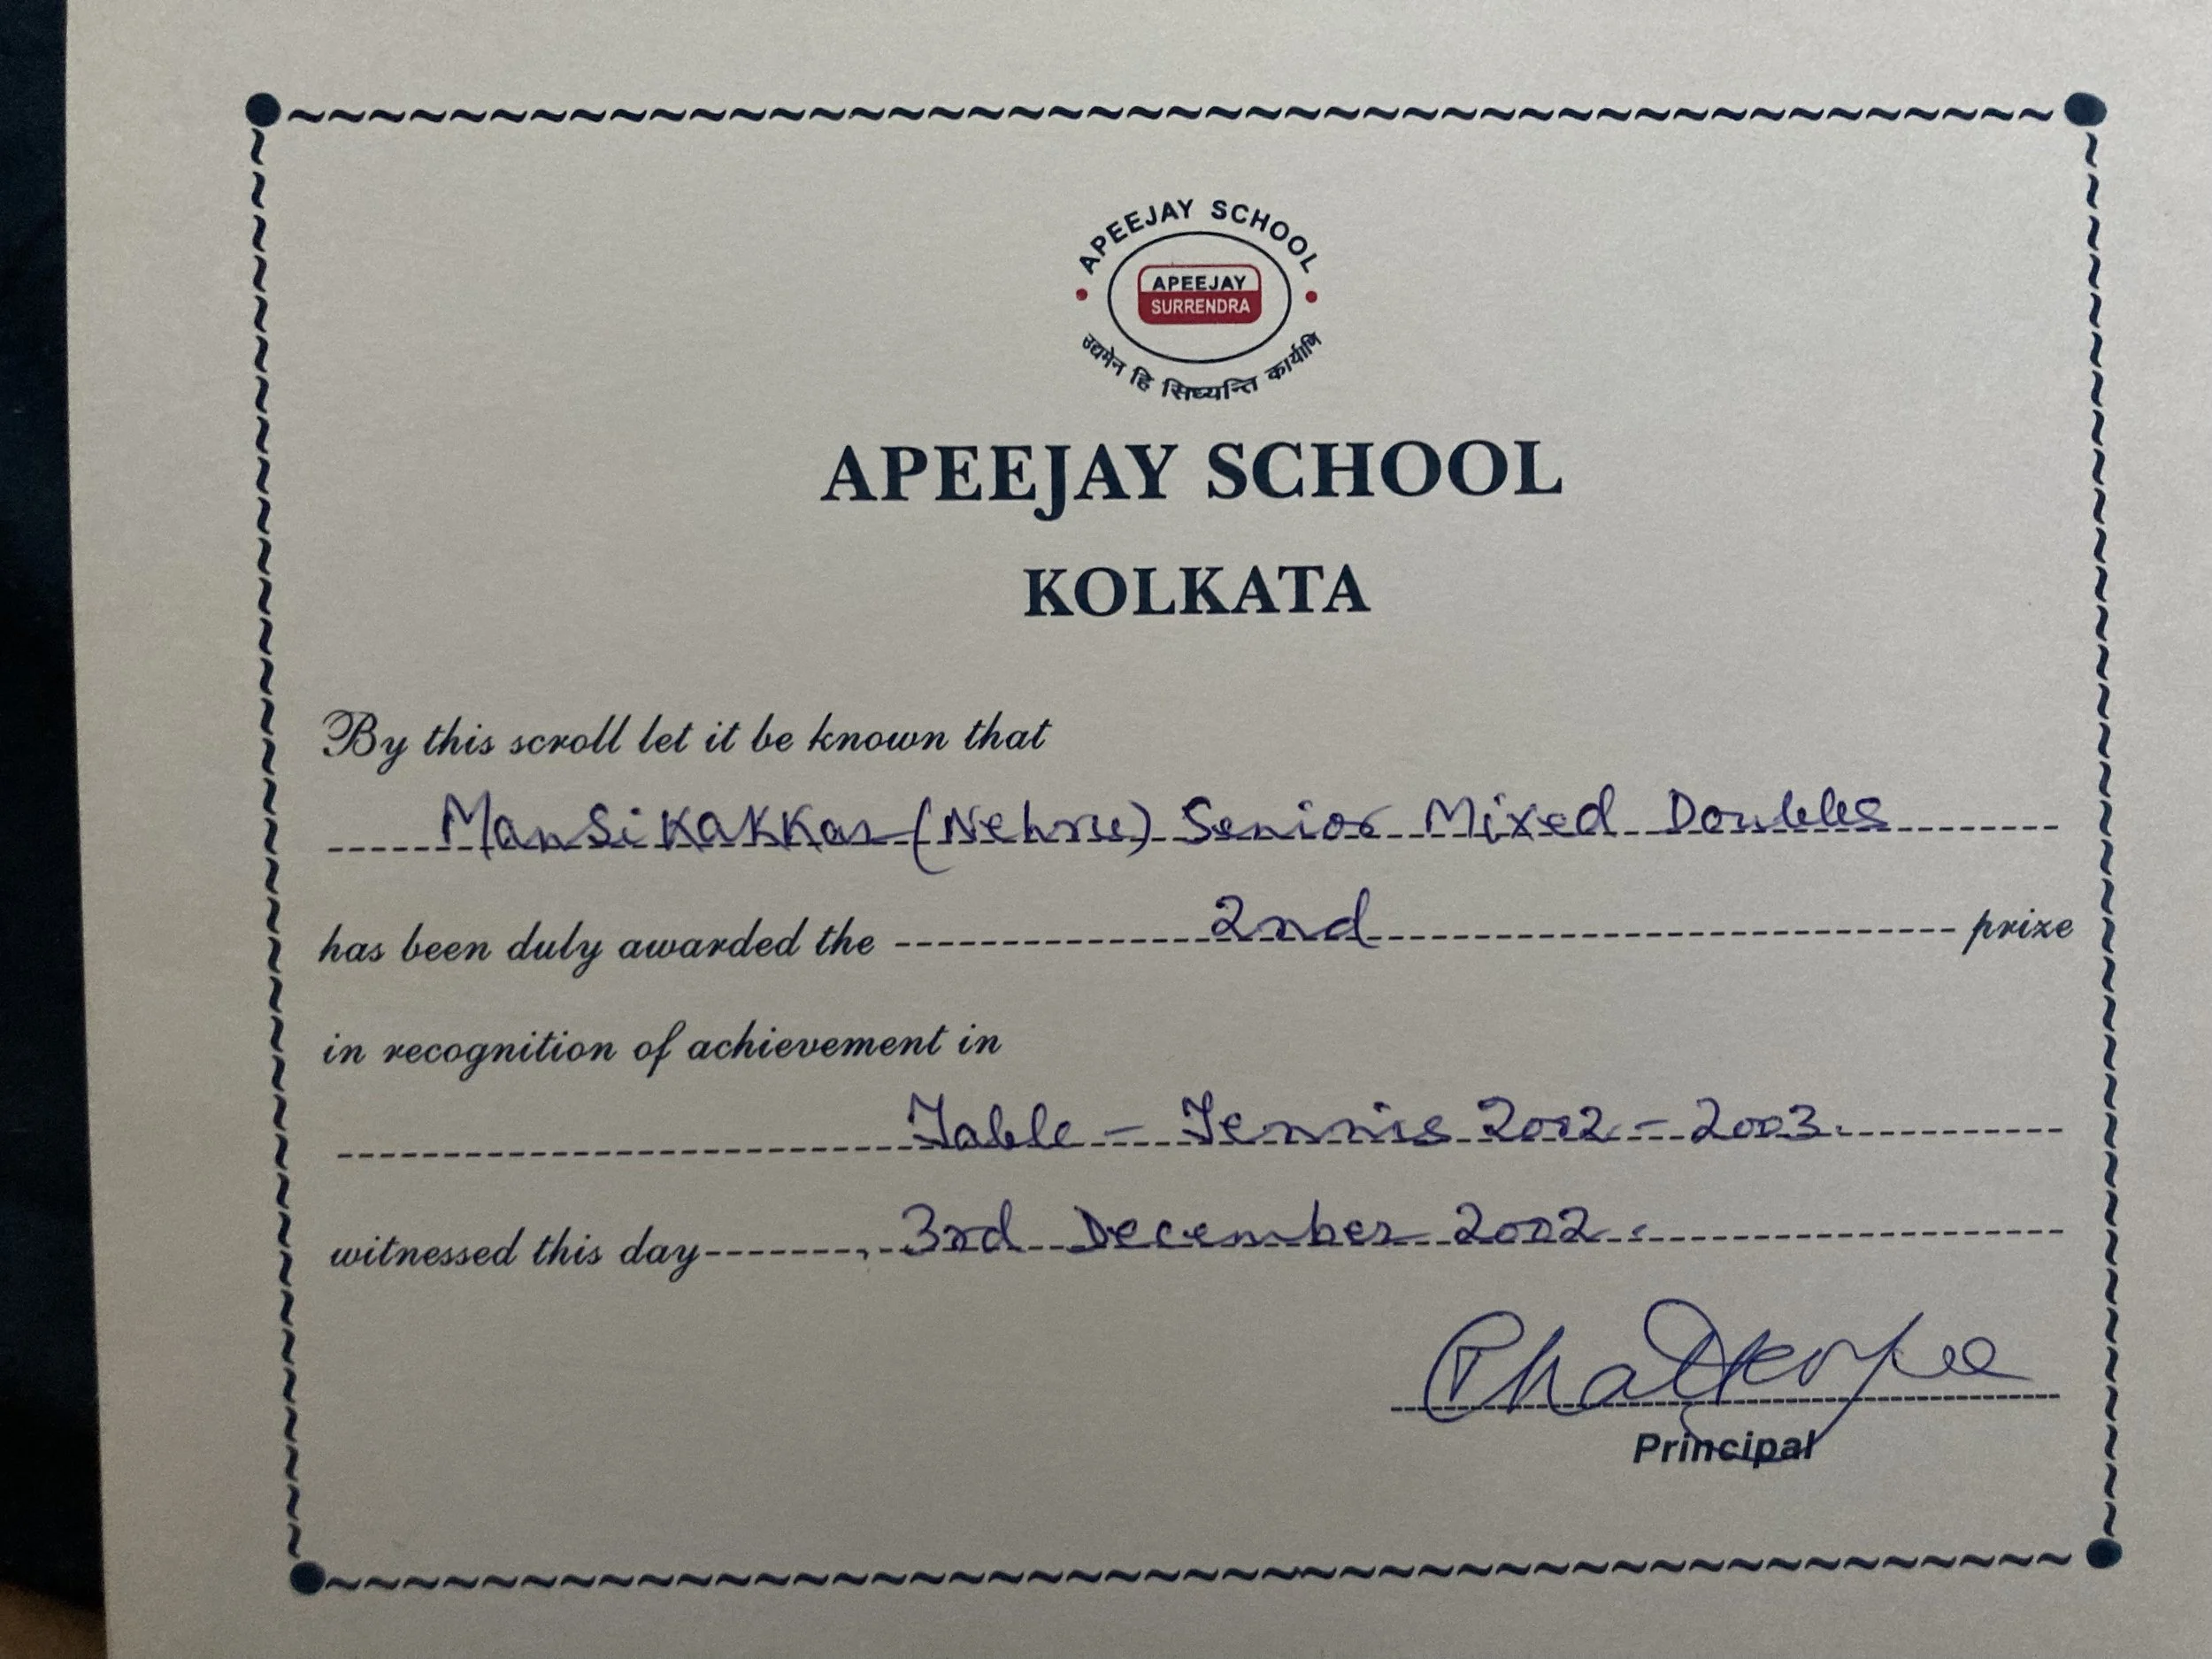 APEEJAY SCHOOL
APEEJAY
SURRENDRA
उद्यमेन हि सिध्यन्ति कार्याणि
APEEJAY SCHOOL
KOLKATA
By this scroll let it be known that
Mansi Kakkar (Nehru) Senior Mixed Doubles
has been duly awarded the 2nd prize
in recognition of achievement in
Table - Tennis 2002 - 2003.
witnessed this day 3rd December 2002.
Chatterjee
Principal